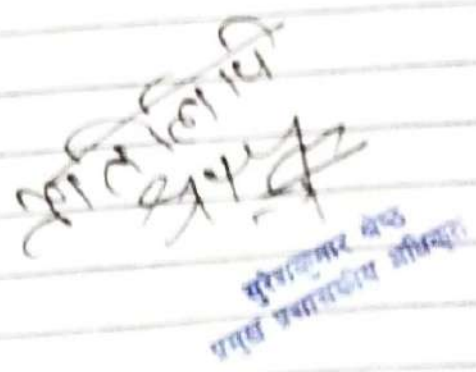 प्रतिलिपि
सुरेशकुमार श्रेष्ठ
प्रमुख प्रशासकीय अधिकृत